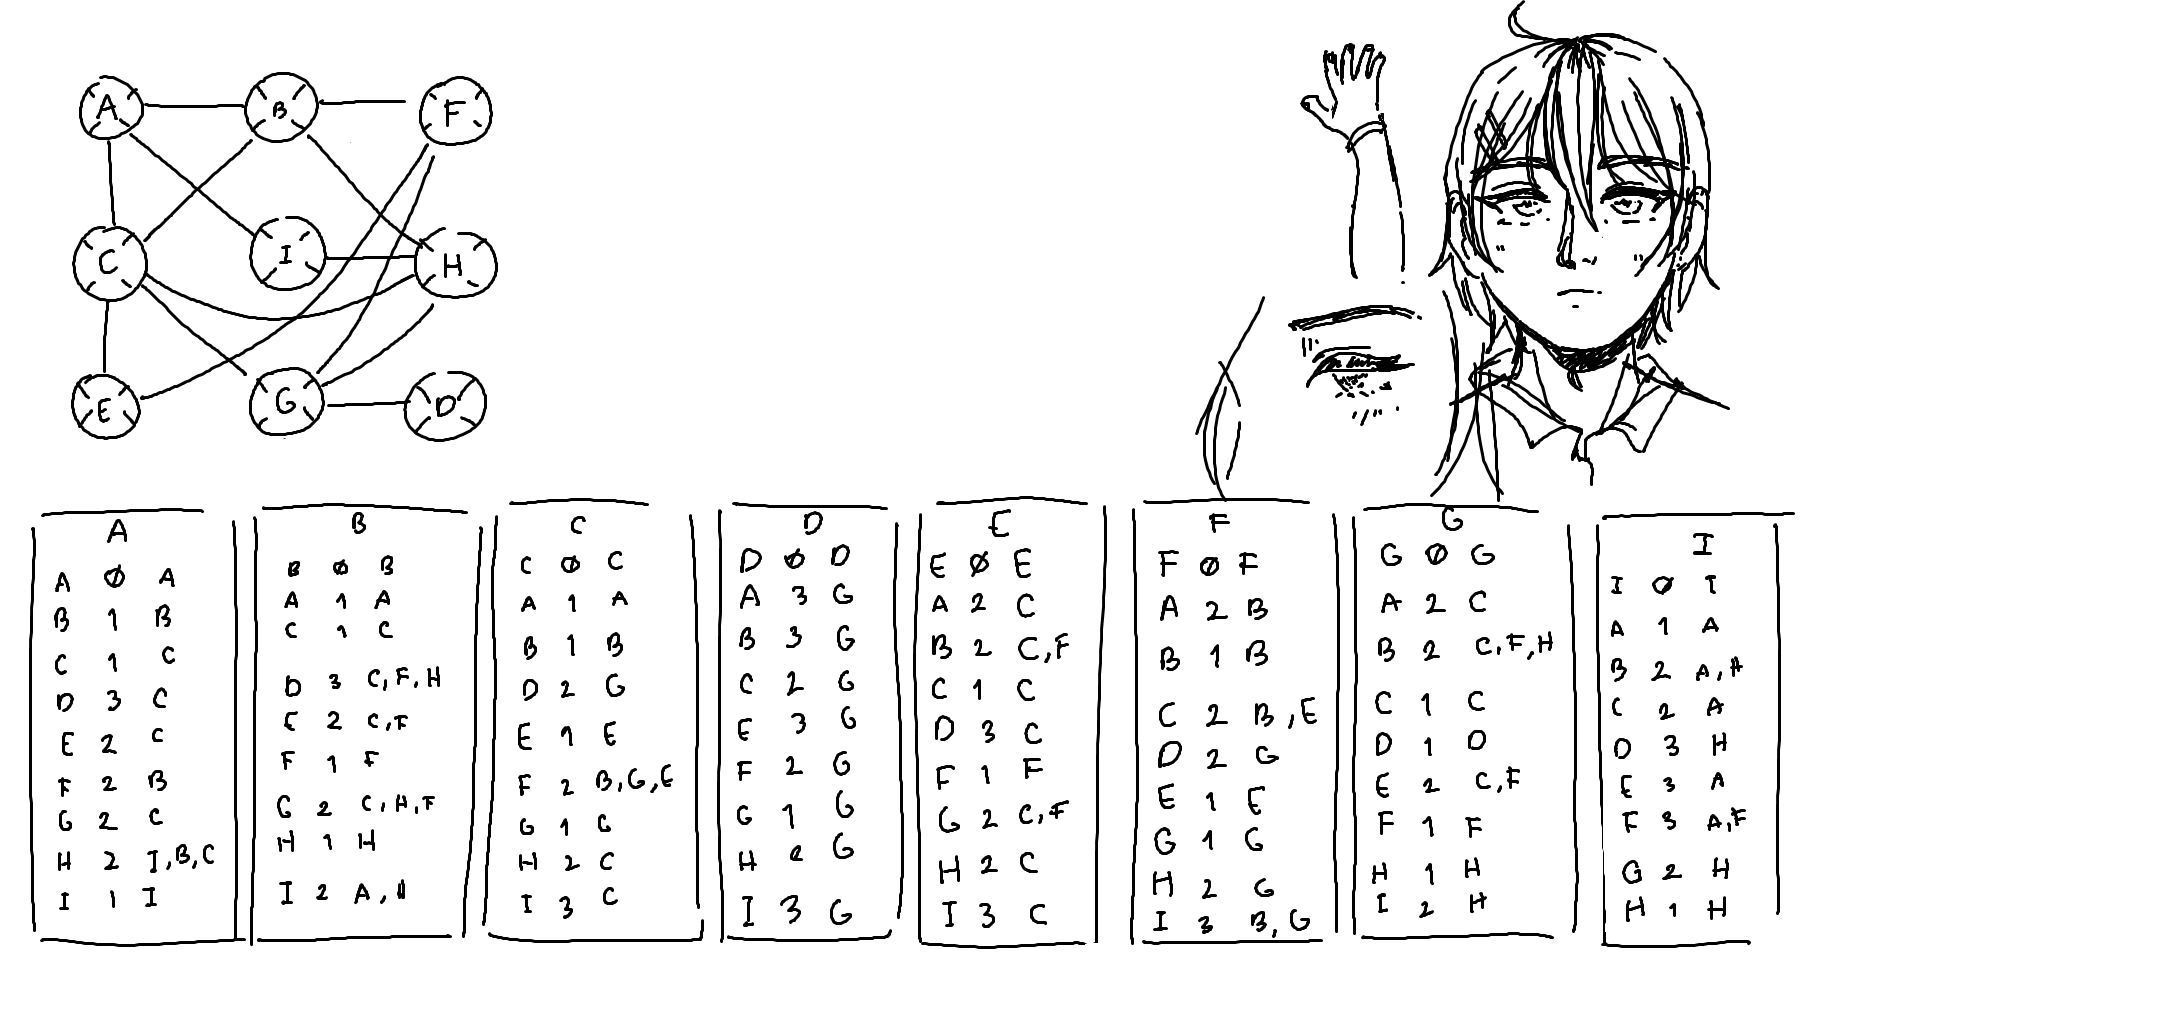 A B F
C I H
E G D
A
A Ø A
B 1 B
C 1 C
D 3 C
E 2 C
F 2 B
G 2 C
H 2 I,B,C
I 1 I
B
B Ø B
A 1 A
C 1 C
D 3 C,F,H
E 2 C,F
F 1 F
G 2 C,H,F
H 1 H
I 2 A,H
C
C Ø C
A 1 A
B 1 B
D 2 G
E 1 E
F 2 B,G,E
G 1 G
H 2 C
I 3 C
D
D Ø D
A 3 G
B 3 G
C 2 G
E 3 G
F 2 G
G 1 G
H 2 G
I 3 G
E
E Ø E
A 2 C
B 2 C,F
C 1 C
D 3 C
F 1 F
G 2 C,F
H 2 C
I 3 C
F
F Ø F
A 2 B
B 1 B
C 2 B,E
D 2 G
E 1 E
G 1 G
H 2 G
I 3 B,G
G
G Ø G
A 2 C
B 2 C,F,H
C 1 C
D 1 D
E 2 C,F
F 1 F
H 1 H
I 2 H
I
I Ø I
A 1 A
B 2 A,H
C 2 A
D 3 H
E 3 A
F 3 A,F
G 2 H
H 1 H